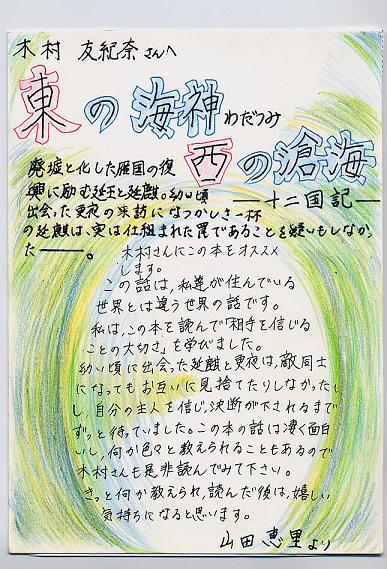 木村 友紀奈さんへ
東の海神 わだつみ
西の滄海
廃墟と化した雁国の復
―十二国記―
興に励む延王と延麒。幼い頃
出会った更夜の来訪になつかしさ一杯
の延麒は、実は仕組まれた罠であることを疑いもしなかっ
た――。
木村さんにこの本をオススメ
します。
この話は、私達が住んでいる
世界とは違う世界の話です。
私は、この本を読んで「相手を信じる
ことの大切さ」を学びました。
幼い頃に出会った延麒と更夜は、敵同士
になってもお互いに見捨てたりしなかった
し、自分の主人を信じ、決断が下されるまで
ずっと待っていました。この本の話は凄く面白
いし、何か色々と教えられることもあるので
木村さんも是非読んでみて下さい。
きっと何か教えられ、読んだ後は、嬉しい
気持ちになると思います。
山田 恵里より